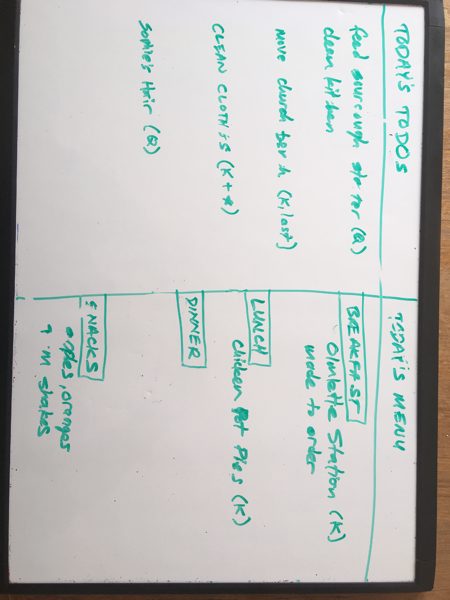 TODAY'S TODOS
feed sourcough starter (Q)
clean kitchen
move church bench (K, last)
CLEAN CLOTHS (K + *)
Sophie's Hair (Q)
TODAY'S MENU
BREAKFAST
Omlette Station (K)
made to order
LUNCH
Chicken Pot Pies (K)
DINNER
SNACKS
apples, oranges
shakes